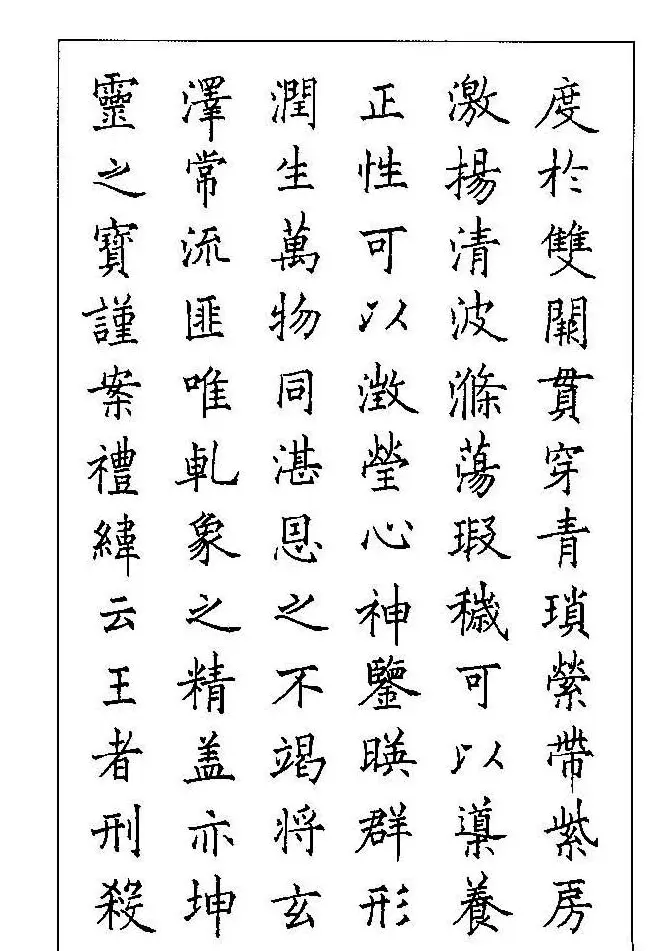 度於雙闕貫穿青瑣縈帶紫房
激揚清波滌蕩瑕穢可以導養
正性可以澂瑩心神鑒暎群形
潤生萬物同湛恩之不竭將玄
澤常流匪唯乹象之精盖亦坤
靈之寶謹案禮緯云王者刑殺